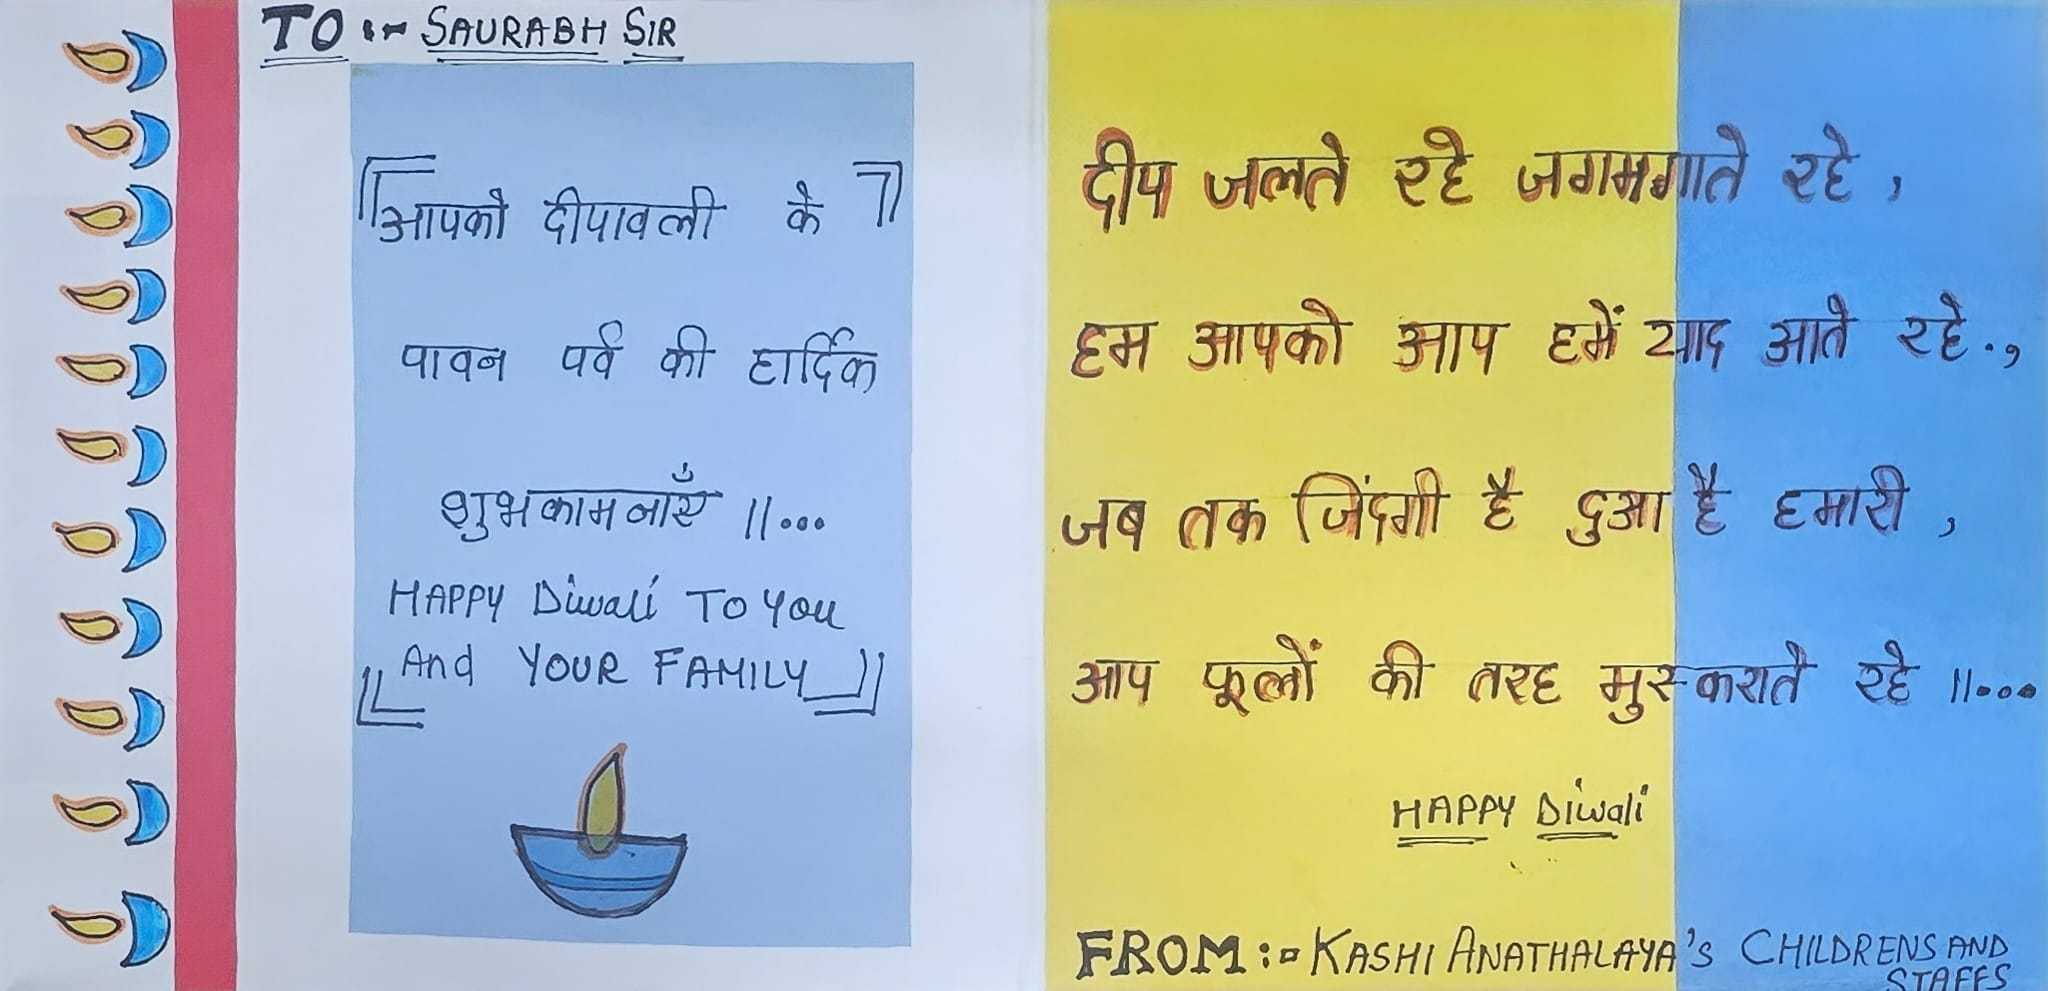 TO :- SAURABH SIR
आपको दीपावली के
पावन पर्व की हार्दिक
शुभकामनाएँ ||...
HAPPY Diwali To You
And YOUR FAMILY
दीप जलते रहे जगमगाते रहे,
हम आपको आप हमें याद आते रहे.,
जब तक जिंदगी है दुआ है हमारी,
आप फूलों की तरह मुस्कराते रहे ||...
HAPPY Diwali
FROM :- KASHI ANATHALAYA'S CHILDRENS AND
STAFFS